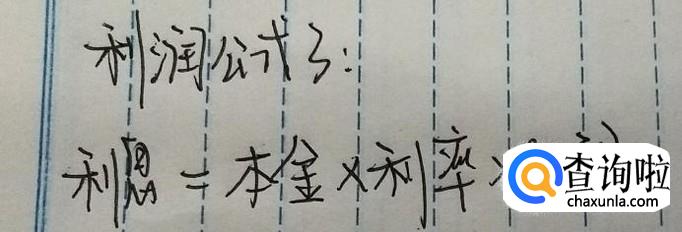 利润公式3:
利息=本金×利率×
查询啦
chaxunla.com